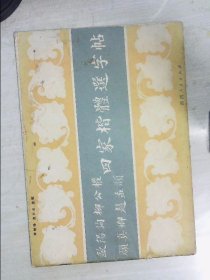 歐陽詢柳公權
顏真卿趙孟頫
四家楷體選字帖